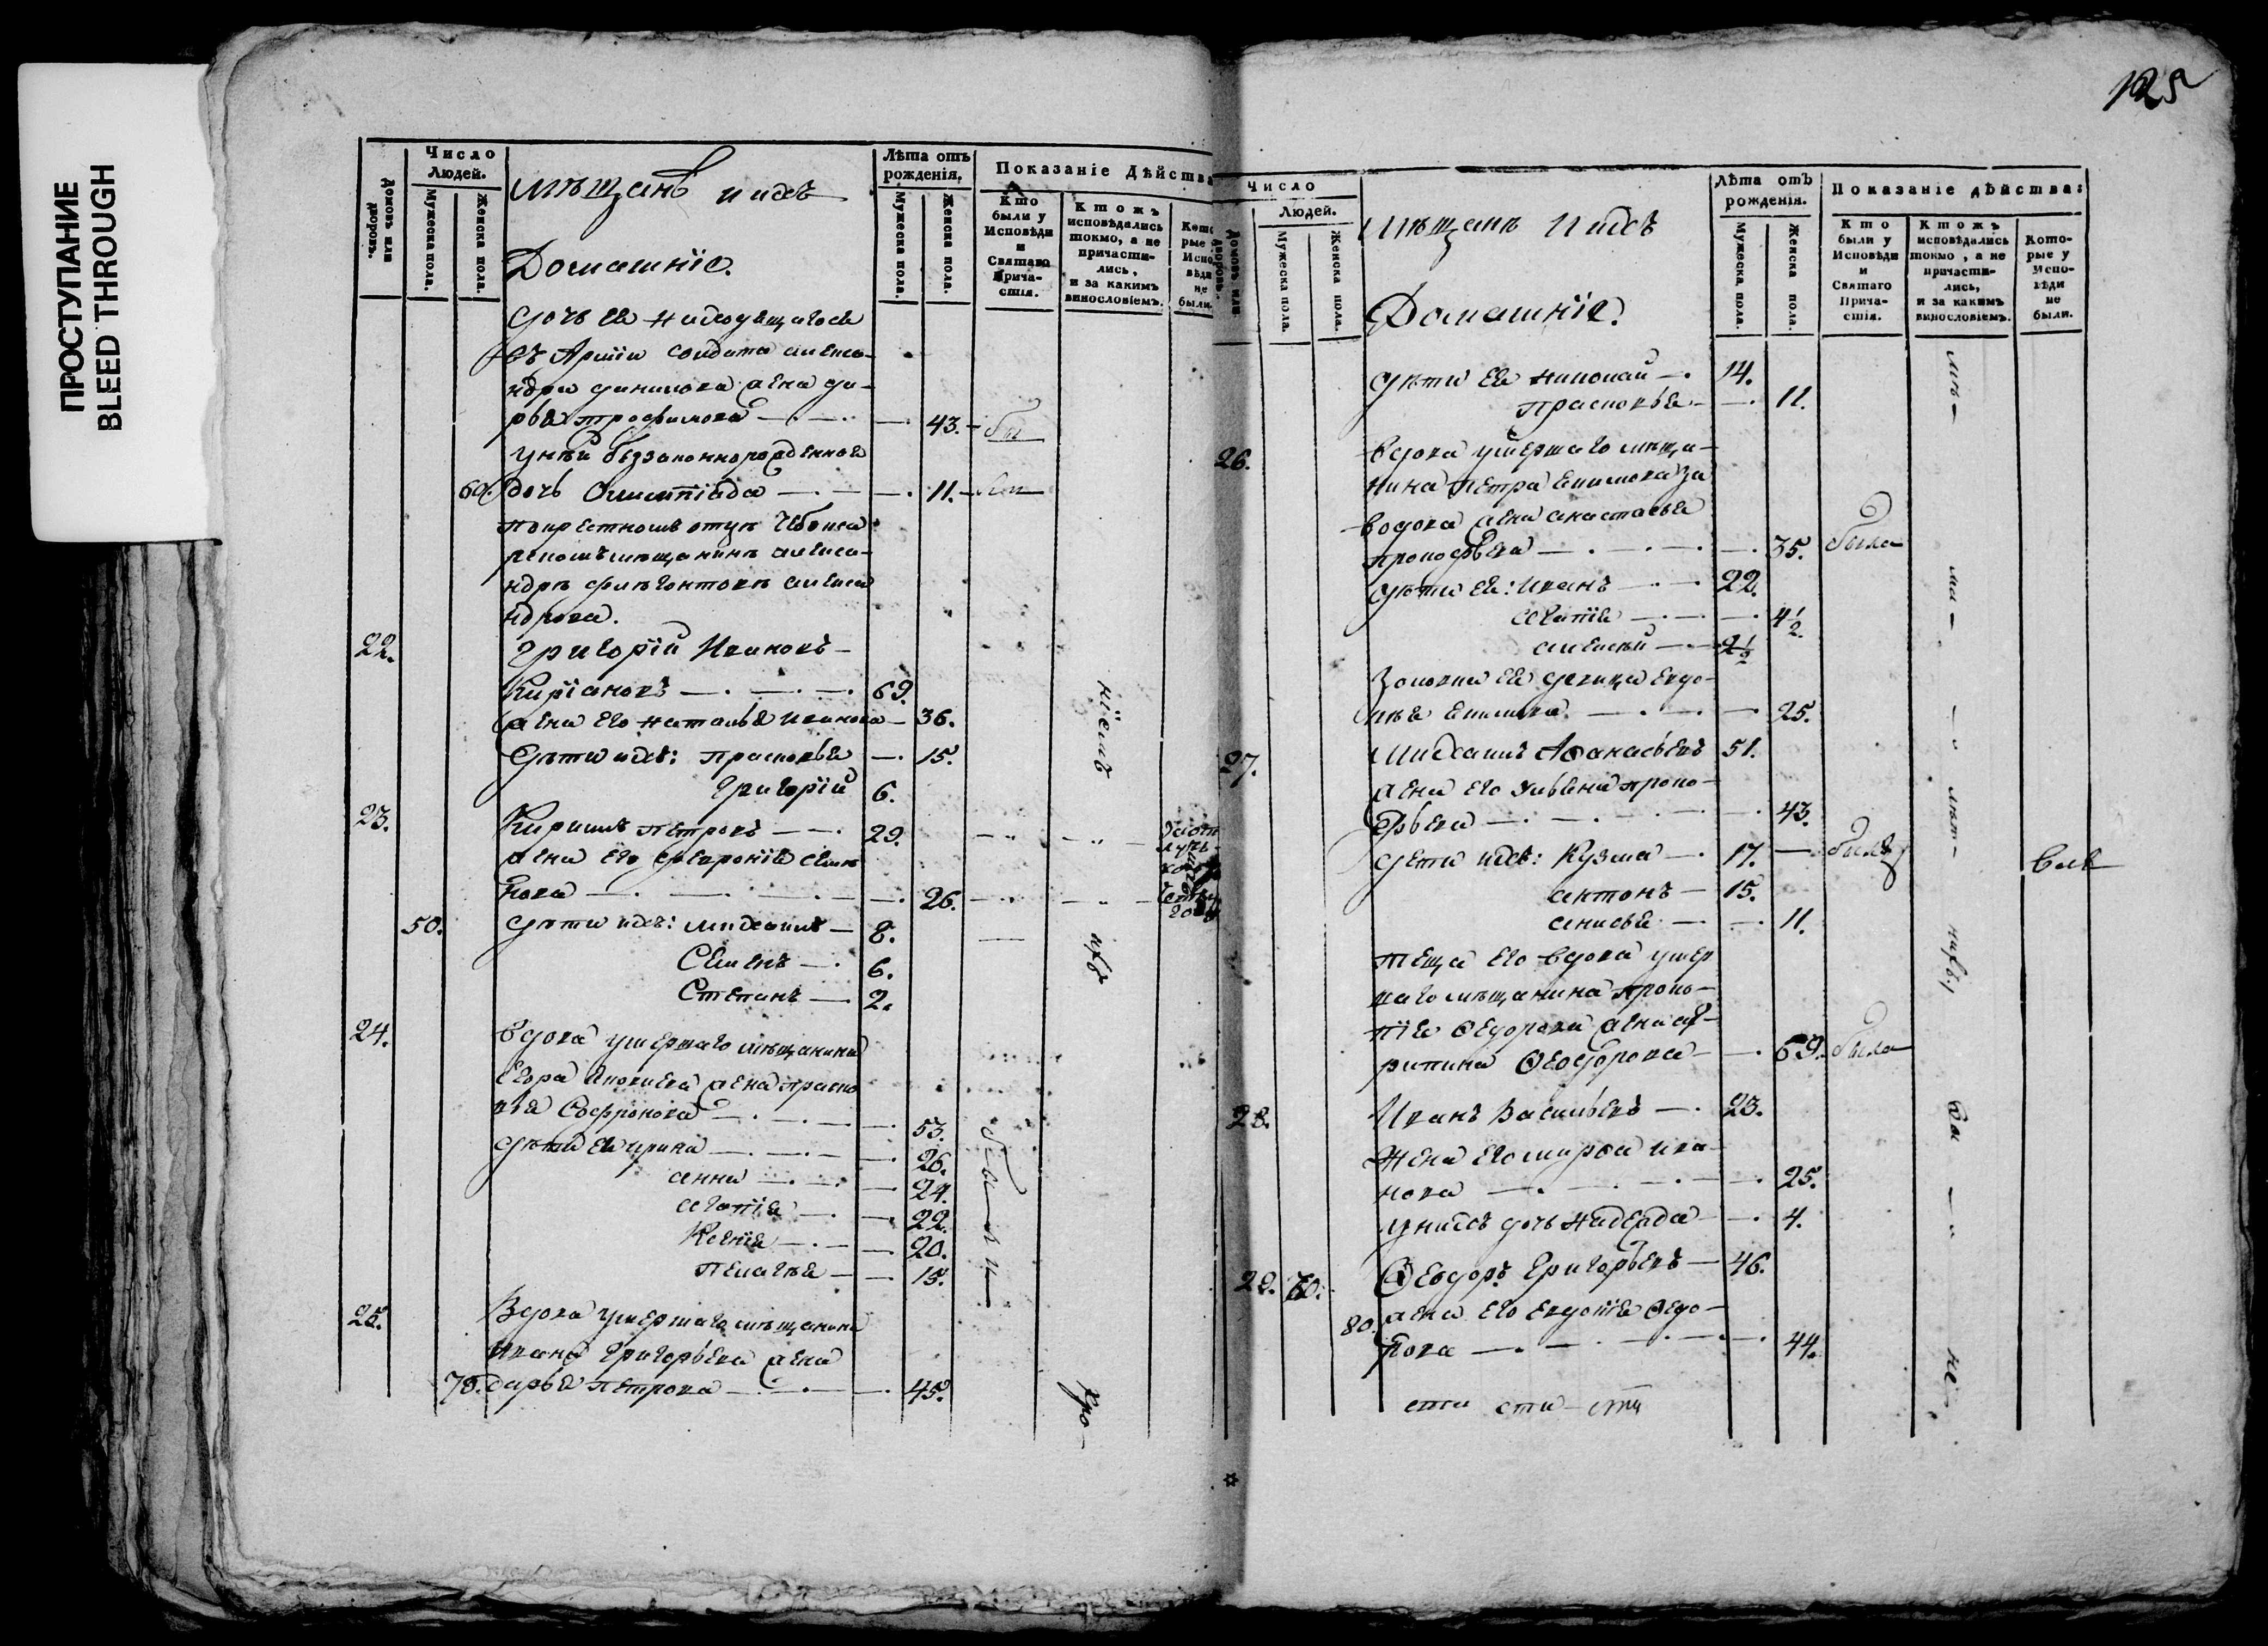 ПРОСТУПАНИЕ
BLEED THROUGH
125
Число
Людей.
Домовъ или дворовъ.
Мужеска пола.
Женска пола.
мѣщанъ и ихъ
Домашніе.
Лѣта отъ
рожденія.
Мужеска пола.
Женска пола.
Показаніе Дѣйства
Кто
были у
Исповѣди
и
Святаго
Прича-
стія.
Ктожъ
исповѣдались
токмо, а не
причасти-
лись,
и за какимъ
винословіемъ.
Кото
рые
Испо
вѣди
не
были.
дочь ея находящагося
въ Арміи солдата алекса-
ндра данилова жена да-
рья трофимова 43. бы
у нея беззаконнорожденная
60. дочь Олимпіада 11. ли
александрова.
22. григорій Ивановъ
Киріановъ 69.
жена его наталья иванова 36.
дѣти ихъ: прасковья 15.
григорій 6.
23. Кирилъ петровъ 29.
жена его февронія семе
нова 26.
50. дѣти ихъ: михаилъ 8.
Семенъ 6.
Степанъ 2.
24. вдова умершаго мѣщанина
Егора Яковлева жена праско
вья Софронова 53.
дѣти ея ирина 26.
анна 24.
агапія 22.
Ксенія 20.
пелагѣя 15.
были
25. Вдова умершаго мѣщанина
Ивана григорьева жена
70. дарья петрова 45.
Домовъ или дворовъ.
Число
Людей.
Мужеска пола.
Женска пола.
Мѣщанъ и ихъ
Домашніе.
Лѣта отъ
рожденія.
Мужеска пола.
Женска пола.
Показаніе дѣйства:
Кто
были у
Исповѣди
и
Святаго
Прича-
стія.
Ктожъ
исповѣдались
токмо, а не
причасти-
лись,
и за какимъ
винословіемъ.
Кото-
рые у
Испо-
вѣди
не
были.
дѣти ея николай 14.
прасковья 11.
26. вдова умершаго мѣща-
нина петра екимова за
водова жена анастасья
прокофьева 35. была
дѣти ея: иванъ 22.
агапія 4 1/2
алексѣй 2 1/2
золовка ея девица евдо-
кѣя екимова 25.
27. Михаилъ Афанасьевъ 51.
жена его ульяна проко-
фьева 43.
дети ихъ: Кузма 17. былъ
антонъ 15.
анисья 11.
теща его вдова умер
шаго мѣщанина проко-
пія федорова жена аг-
рипина Феодорова 69. была
28. Иванъ Васильевъ 23.
Жена его марфа ива-
нова 25.
у нихъ дочь надежда 4.
29. 60. Феодоръ Григорьевъ 46.
80. жена его евдокія федо-
рова 44.